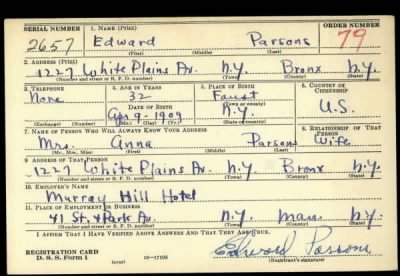 SERIAL NUMBER 1. NAME (Print) ORDER NUMBER
2657 Edward Parsons 79
(First) (Middle) (Last)
2. ADDRESS (Print)
1227 White Plains Av. N.Y. Bronx N.Y.
(Number and street or R. F. D. number) (Town) (County) (State)
3. TELEPHONE 4. AGE IN YEARS 5. PLACE OF BIRTH 6. COUNTRY OF CITIZENSHIP
None 32 Faust U.S.
DATE OF BIRTH (Town or county)
Apr 9-1909 N.Y.
(Exchange) (Number) (Mo.) (Day) (Yr.) (State or country)
7. NAME OF PERSON WHO WILL ALWAYS KNOW YOUR ADDRESS 8. RELATIONSHIP OF THAT PERSON
Mrs. Anna Parsons Wife
(Mr., Mrs., Miss) (First) (Middle) (Last)
9. ADDRESS OF THAT PERSON
1227 White Plains Av. N.Y. Bronx N.Y.
(Number and street or R. F. D. number) (Town) (County) (State)
10. EMPLOYER'S NAME
Murray Hill Hotel
11. PLACE OF EMPLOYMENT OR BUSINESS
41 St. & Park Av. N.Y. Man. N.Y.
(Number and street or R. F. D. number) (Town) (County) (State)
I AFFIRM THAT I HAVE VERIFIED ABOVE ANSWERS AND THAT THEY ARE TRUE.
REGISTRATION CARD
D. S. S. Form 1 (over) 16—17105 Edward Parsons
(Registrant's signature)